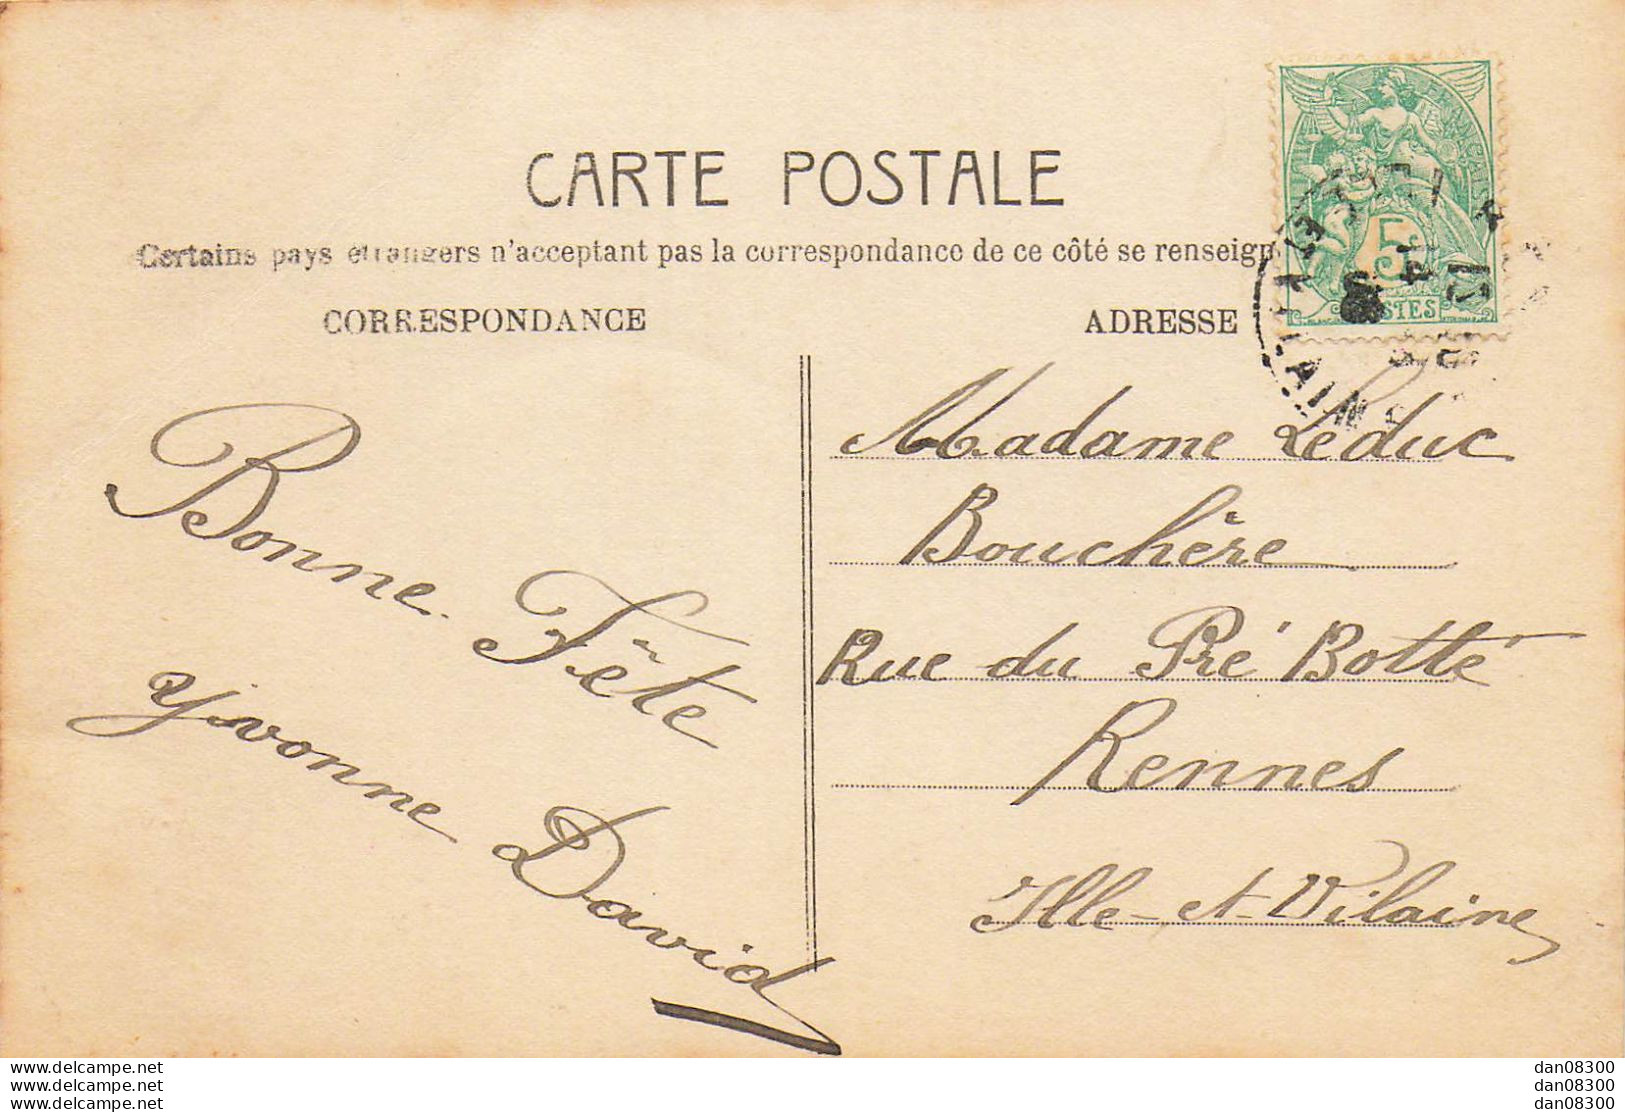 CARTE POSTALE
Certains pays étrangers n'acceptant pas la correspondance de ce côté se renseign
CORRESPONDANCE
ADRESSE
FRANÇAISE
5
POSTES
ET-VILAINE
14
Bonne Fête
Yvonne David
Madame Leduc
Bouchère
Rue du Pré Botté
Rennes
Ille-et-Vilaine
www.delcampe.net
www.delcampe.net
www.delcampe.net
dan08300
dan08300
dan08300